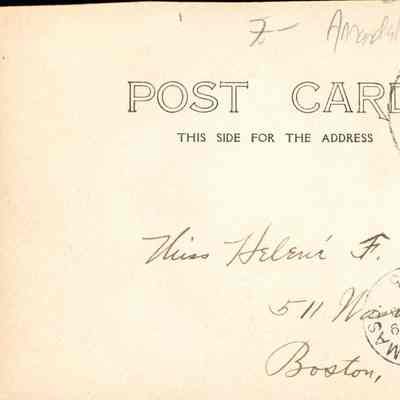 POST CARD
THIS SIDE FOR THE ADDRESS
Miss Helené F.
511
Boston,
MASS